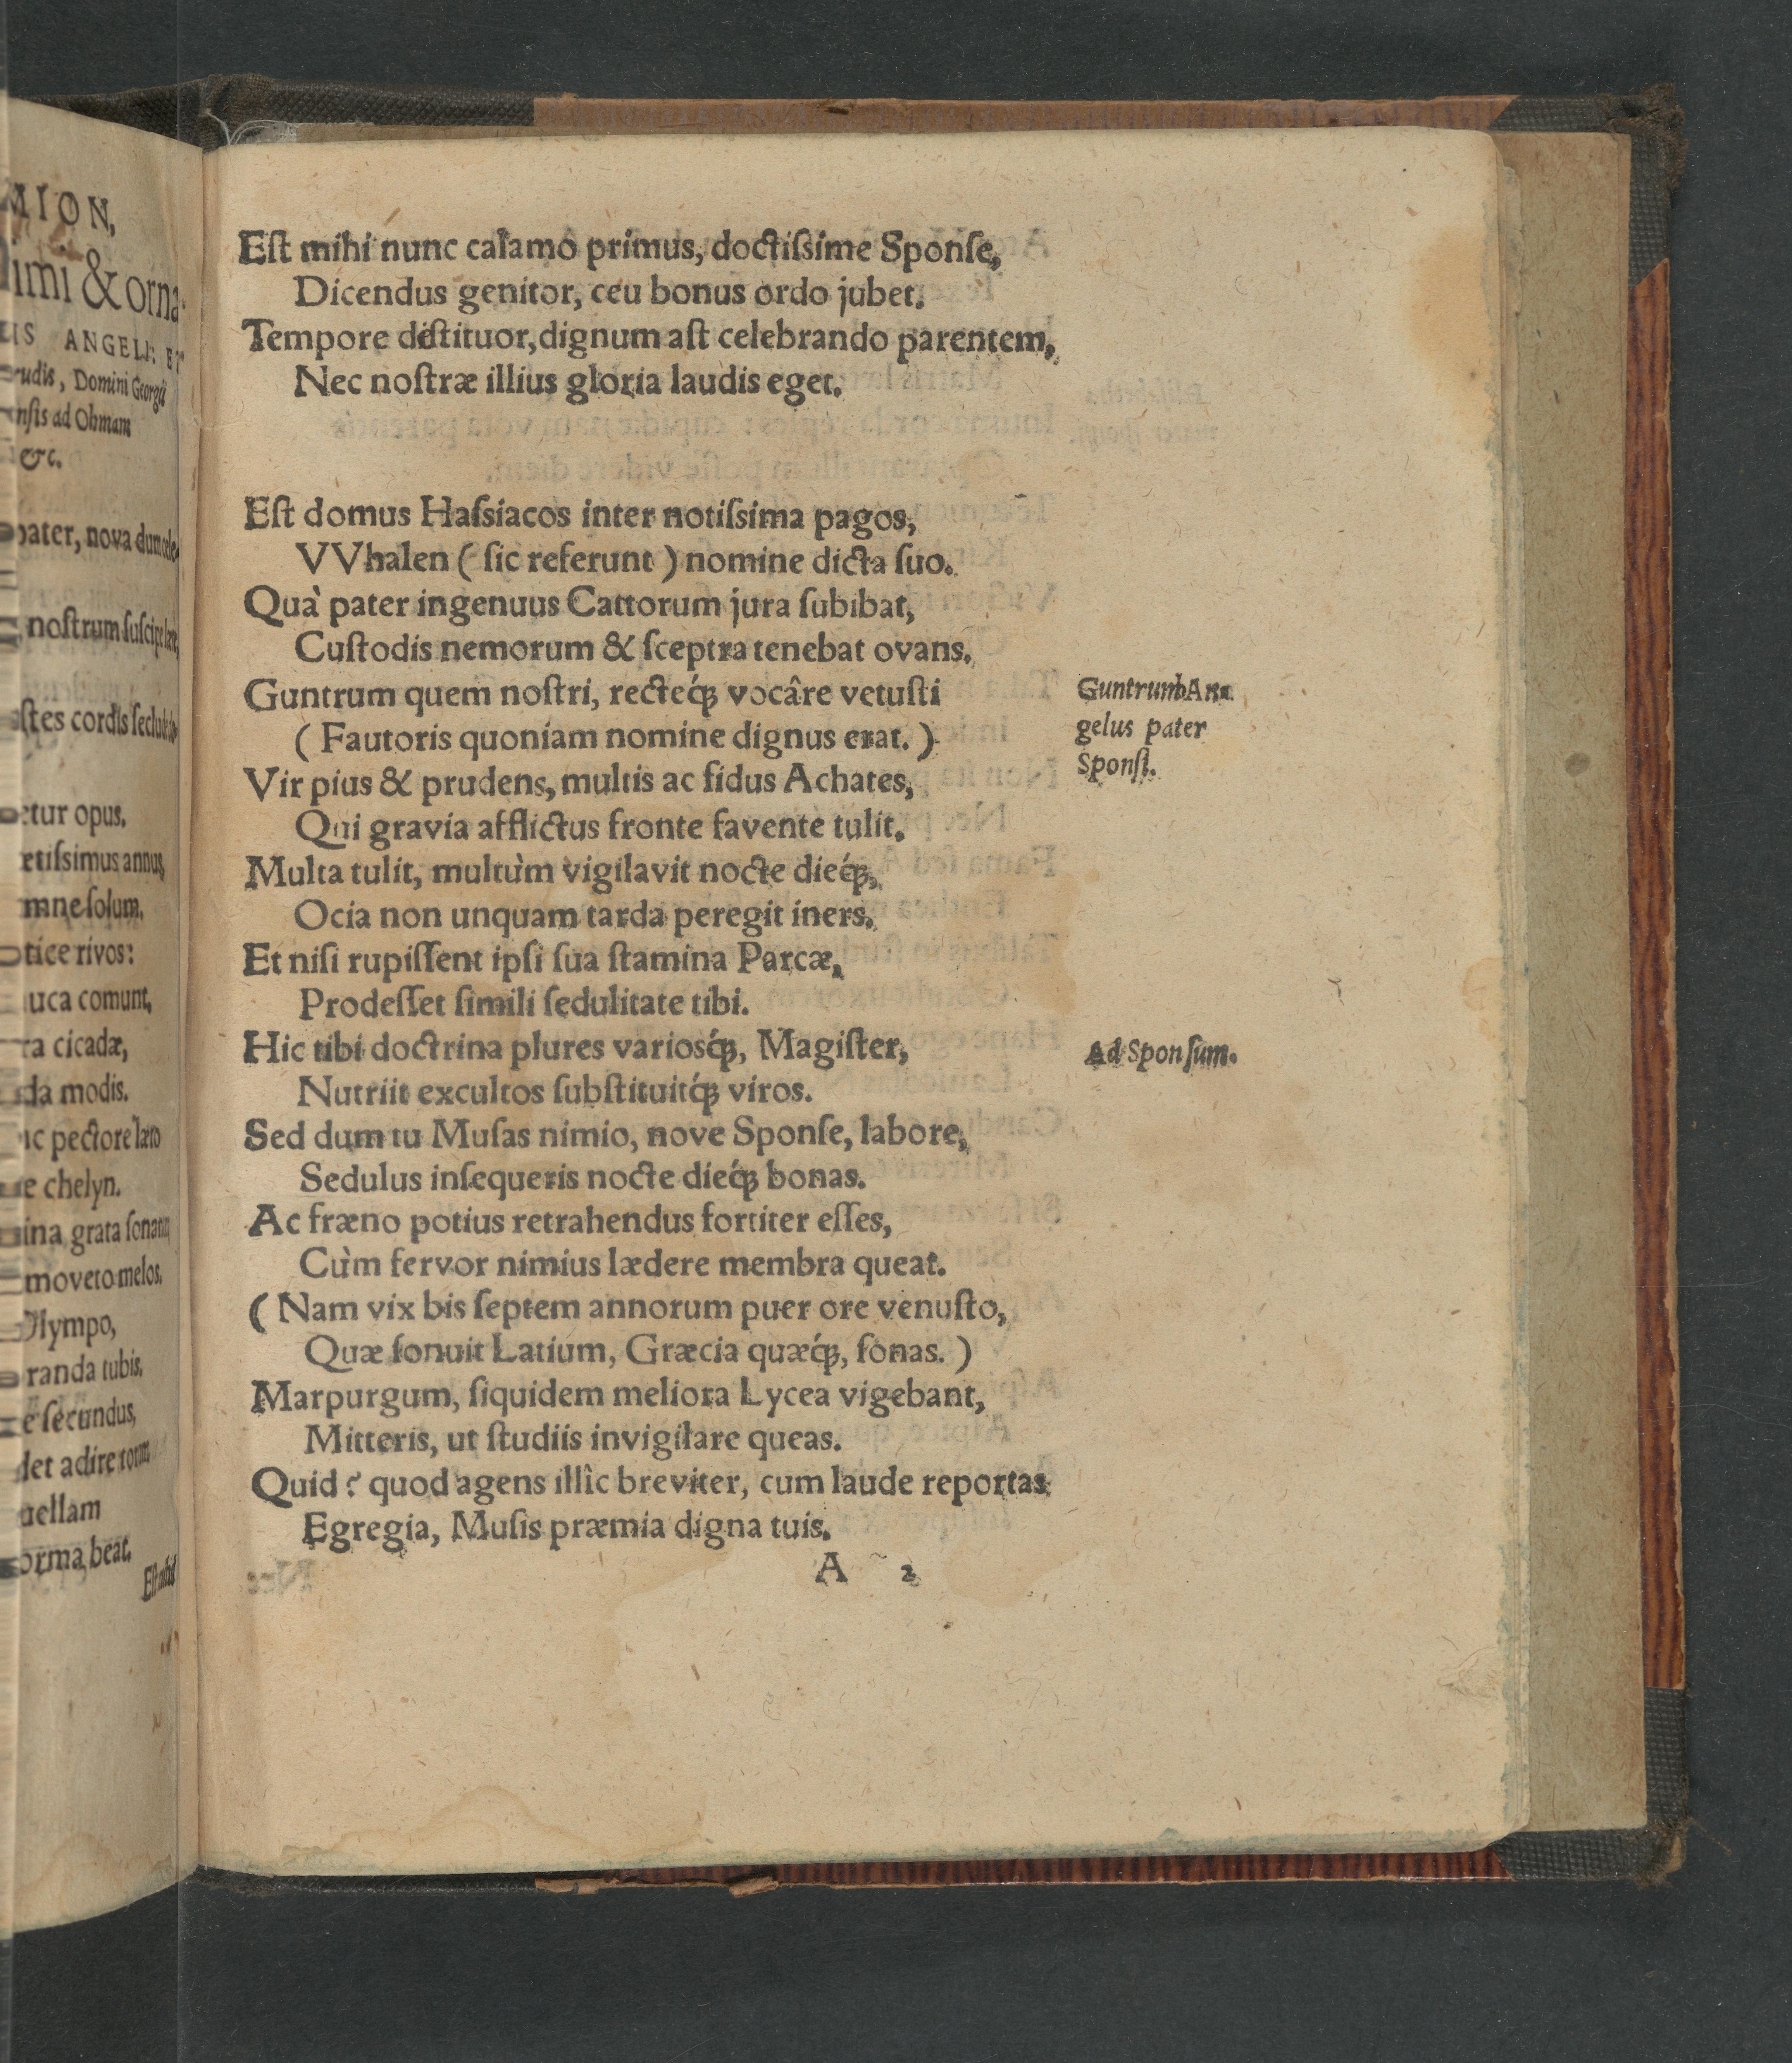 AION,
imi & orna-
LIS ANGELI ET
rudis, Domini Georgii
nsis ad Ohmam
&c.
pater, nova dum cele-
nostrum suscipe
stes cordis
etur opus.
etissimus annus,
mne solum.
tice rivos:
uca comunt,
ra cicadæ,
da modis.
ic pectore læto
e chelyn.
ina grata sonant
moveto melos.
Olympo,
randa tubis.
e secundus,
det adire torum
uellam
orma beat.
Est mihi
Eſt mihi nunc calamo primus, doctiſsime Sponſe,
Dicendus genitor, ceu bonus ordo jubet.
Tempore deſtituor, dignum aſt celebrando parentem,
Nec noſtræ illius gloria laudis eget.
Eſt domus Haſsiacos inter notiſsima pagos,
VVhalen ( ſic referunt ) nomine dicta ſuo.
Quà pater ingenuus Cattorum jura ſubibat,
Cuſtodis nemorum & ſceptra tenebat ovans.
Guntrum quem noſtri, recteq́; vocâre vetuſti
( Fautoris quoniam nomine dignus erat. )
Vir pius & prudens, multis ac fidus Achates,
Qui gravia afflictus fronte favente tulit.
Multa tulit, multùm vigilavit nocte dieq́;,
Ocia non unquam tarda peregit iners.
Et niſi rupiſſent ipſi ſua ſtamina Parcæ,
Prodeſſet ſimili ſedulitate tibi.
Hic tibi doctrina plures varioſq́;, Magiſter,
Nutriit excultos ſubſtituitq́; viros.
Sed dum tu Muſas nimio, nove Sponſe, labore,
Sedulus inſequeris nocte dieq́; bonas.
Ac fræno potius retrahendus fortiter eſſes,
Cùm fervor nimius lædere membra queat.
( Nam vix bis ſeptem annorum puer ore venuſto,
Quæ ſonuit Latium, Græcia quæq́;, ſonas. )
Marpurgum, ſiquidem meliora Lycea vigebant,
Mitteris, ut ſtudiis invigilare queas.
Quid? quod agens illîc breviter, cum laude reportas
Egregia, Muſis præmia digna tuis.
A 2
Guntrum An-
gelus pater
Sponſi.
Ad Sponſum.